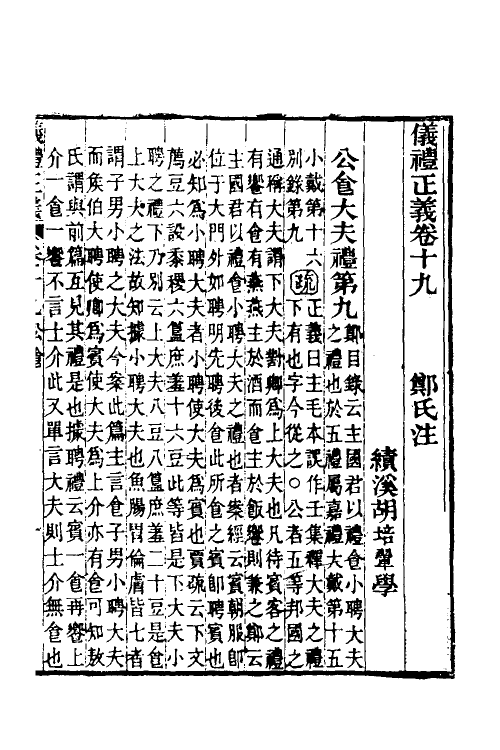 儀禮正義卷十九　　鄭氏注
績溪胡培翬學
公食大夫禮第九鄭目錄云主國君以禮食小聘大夫之禮也於五禮屬嘉禮大戴第十五
小戴第十六別錄第九疏正義曰主毛本誤作壬集釋大夫之禮下有也字今從之○公者五等邦國之
通稱大夫謂下大夫對卿爲上大夫也凡待賓客之禮
有饗有食有燕燕主於酒而食主於飯饗則兼之鄭云
主國君以禮食小聘大夫之禮也者案經云賓朝服卽
位于大門外如聘明先聘後食此所食之賓卽聘賓也
必知爲小聘大夫者小聘使大夫爲賓也賈疏云下文
薦豆六設黍稷六簋庶羞十六豆此等皆是下大夫小
聘之禮下乃別云上大夫八豆八簋庶羞二十豆是食
上大夫之法故知據小聘大夫也魚腸胃倫膚皆七者
謂子男小聘之大夫今案此篇主言食子男小聘大夫
而矦伯大聘使卿爲賓使大夫爲上介亦有食可知敖
氏謂與前篇互見其禮是也據聘禮云賓一食再饗上
介一食一饗不言士介此又單言大夫則士介無食也
儀禮正義　卷十九公食